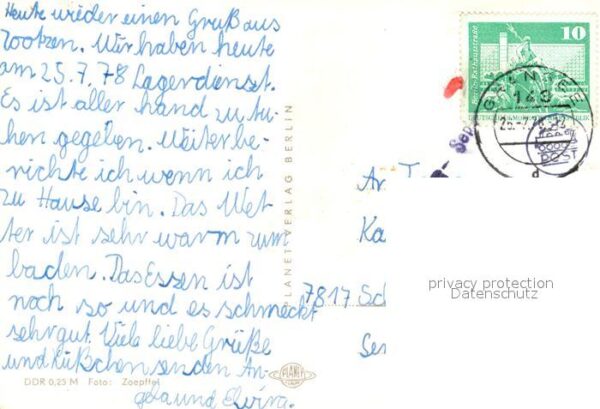 Heute wieder einen Gruß aus
Zootzen. Wir haben heute
am 25.7.78 Lagerdienst.
Es ist aller hand zu tu-
hen gegeben. Weiter be-
richte ich wenn ich
zu Hause bin. Das Wet-
ter ist sehr warm zum
baden. Das Essen ist
noch so und es schmeckt
sehr gut. Viele liebe Grüße
und Küßchen senden An-
gela und Elvira.
DDR 0,25 M Foto: Zoepffel
PLANET-VERLAG BERLIN
PLANET
10
Berlin, Rathausstraße
DEUTSCHE DEMOKRATISCHE REPUBLIK
143
POST
Ka
7817 Sch
privacy protection
Datenschutz